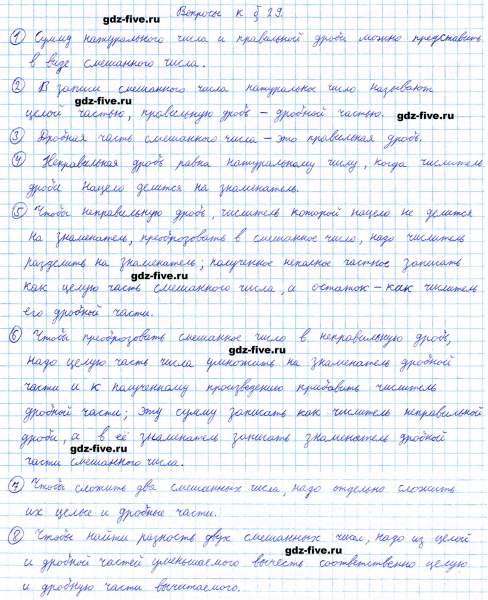 Вопросы к § 29.
gdz-five.ru
① Сумма натурального числа и правильной дроби можно представить
в виде смешанного числа.
gdz-five.ru
② В записи смешанного числа натуральное число называют
gdz-five.ru
целой частью, правильную дробь – дробной частью.
gdz-five.ru
③ Дробная часть смешанного числа – это правильная дробь.
gdz-five.ru
④ Неправильная дробь равна натуральному числу, когда числитель
дроби нацело делится на знаменатель.
gdz-five.ru
⑤ Чтобы неправильную дробь, числитель которой нацело не делится
gdz-five.ru
на знаменатель, преобразовать в смешанное число, надо числитель
разделить на знаменатель; полученное неполное частное записать
gdz-five.ru
как целую часть смешанного числа, а остаток – как числитель
его дробной части.
gdz-five.ru
⑥ Чтобы преобразовать смешанное число в неправильную дробь,
gdz-five.ru
надо целую часть числа умножить на знаменатель дробной
части и к полученному произведению прибавить числитель
gdz-five.ru
дробной части; эту сумму записать как числитель неправильной
дроби, а в её знаменатель записать знаменатель дробной
gdz-five.ru
части смешанного числа.
gdz-five.ru
⑦ Чтобы сложить два смешанных числа, надо отдельно сложить
их целые и дробные части.
gdz-five.ru
⑧ Чтобы найти разность двух смешанных чисел, надо из целой
gdz-five.ru
и дробной частей уменьшаемого вычесть соответственно целую
и дробную части вычитаемого.